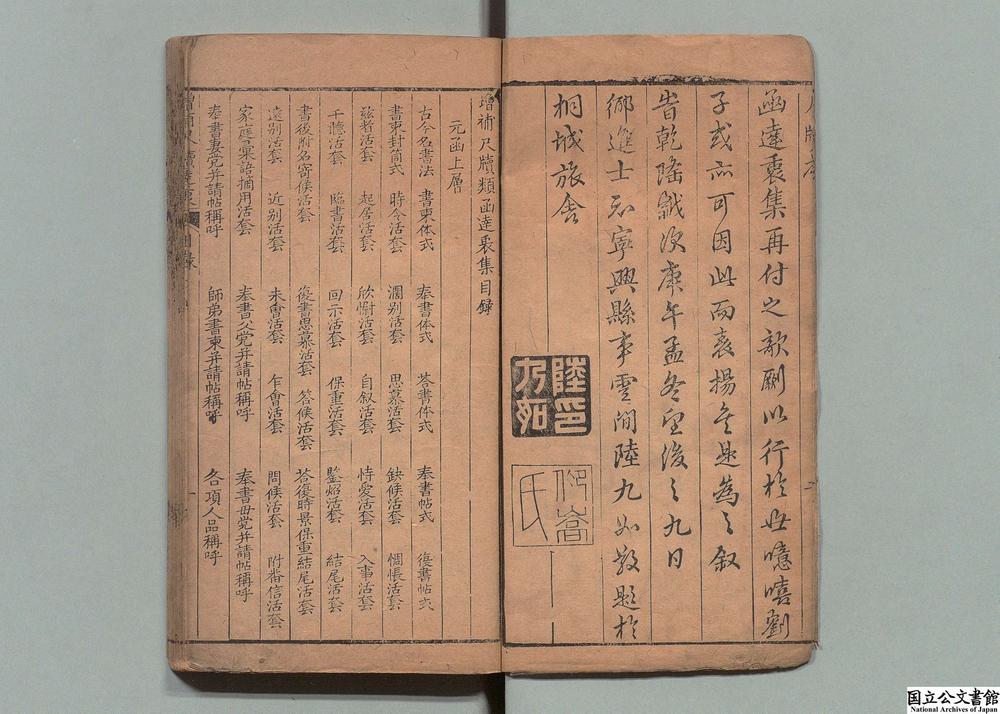 函達裒集再付之歆劂以行於世噫嘻劉
子或亦可因此而表揚矣是為之叙
旹乾隆歲次庚午孟冬望後之九日
鄉進士知寧興縣事雲間陸九如敬題於
桐城旅舍
陸九如印
仰嵩氏
增補尺牘類函達裒集目録
元函上層
古今名書法 書柬体式 奉書体式 答書体式 奉書帖式 復書帖式
書柬封筒式 時令活套 濶别活套 思慕活套 缺候活套 惆悵活套
兹者活套 起居活套 欣慰活套 自叙活套 恃愛活套 入事活套
干聽活套 臨書活套 回示活套 保重活套 鑒炤活套 結尾活套
書後附名寄候活套 復書思慕活套 答候活套 答復時景保重結尾活套
遠别活套 近别活套 未會活套 乍會活套 問候活套 附畨信活套
家庭彚語摘用活套 奉書父党并請帖稱呼 奉書母党并請帖稱呼
奉書妻党并請帖稱呼 師弟書柬并請帖稱呼 各項人品稱呼
国立公文書館
National Archives of Japan